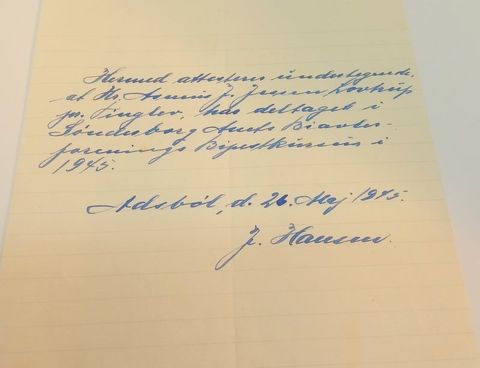 Hermed attesteres undertegnede,
at Hr. Asmus J. Jessen, Lovtrup
pr. Tinglev, har deltaget i
Sønderborg Amts Biavler-
forenings Bipestkursus i
1945.
Adsbøl, d. 26. Maj 1945.
J. Hansen.